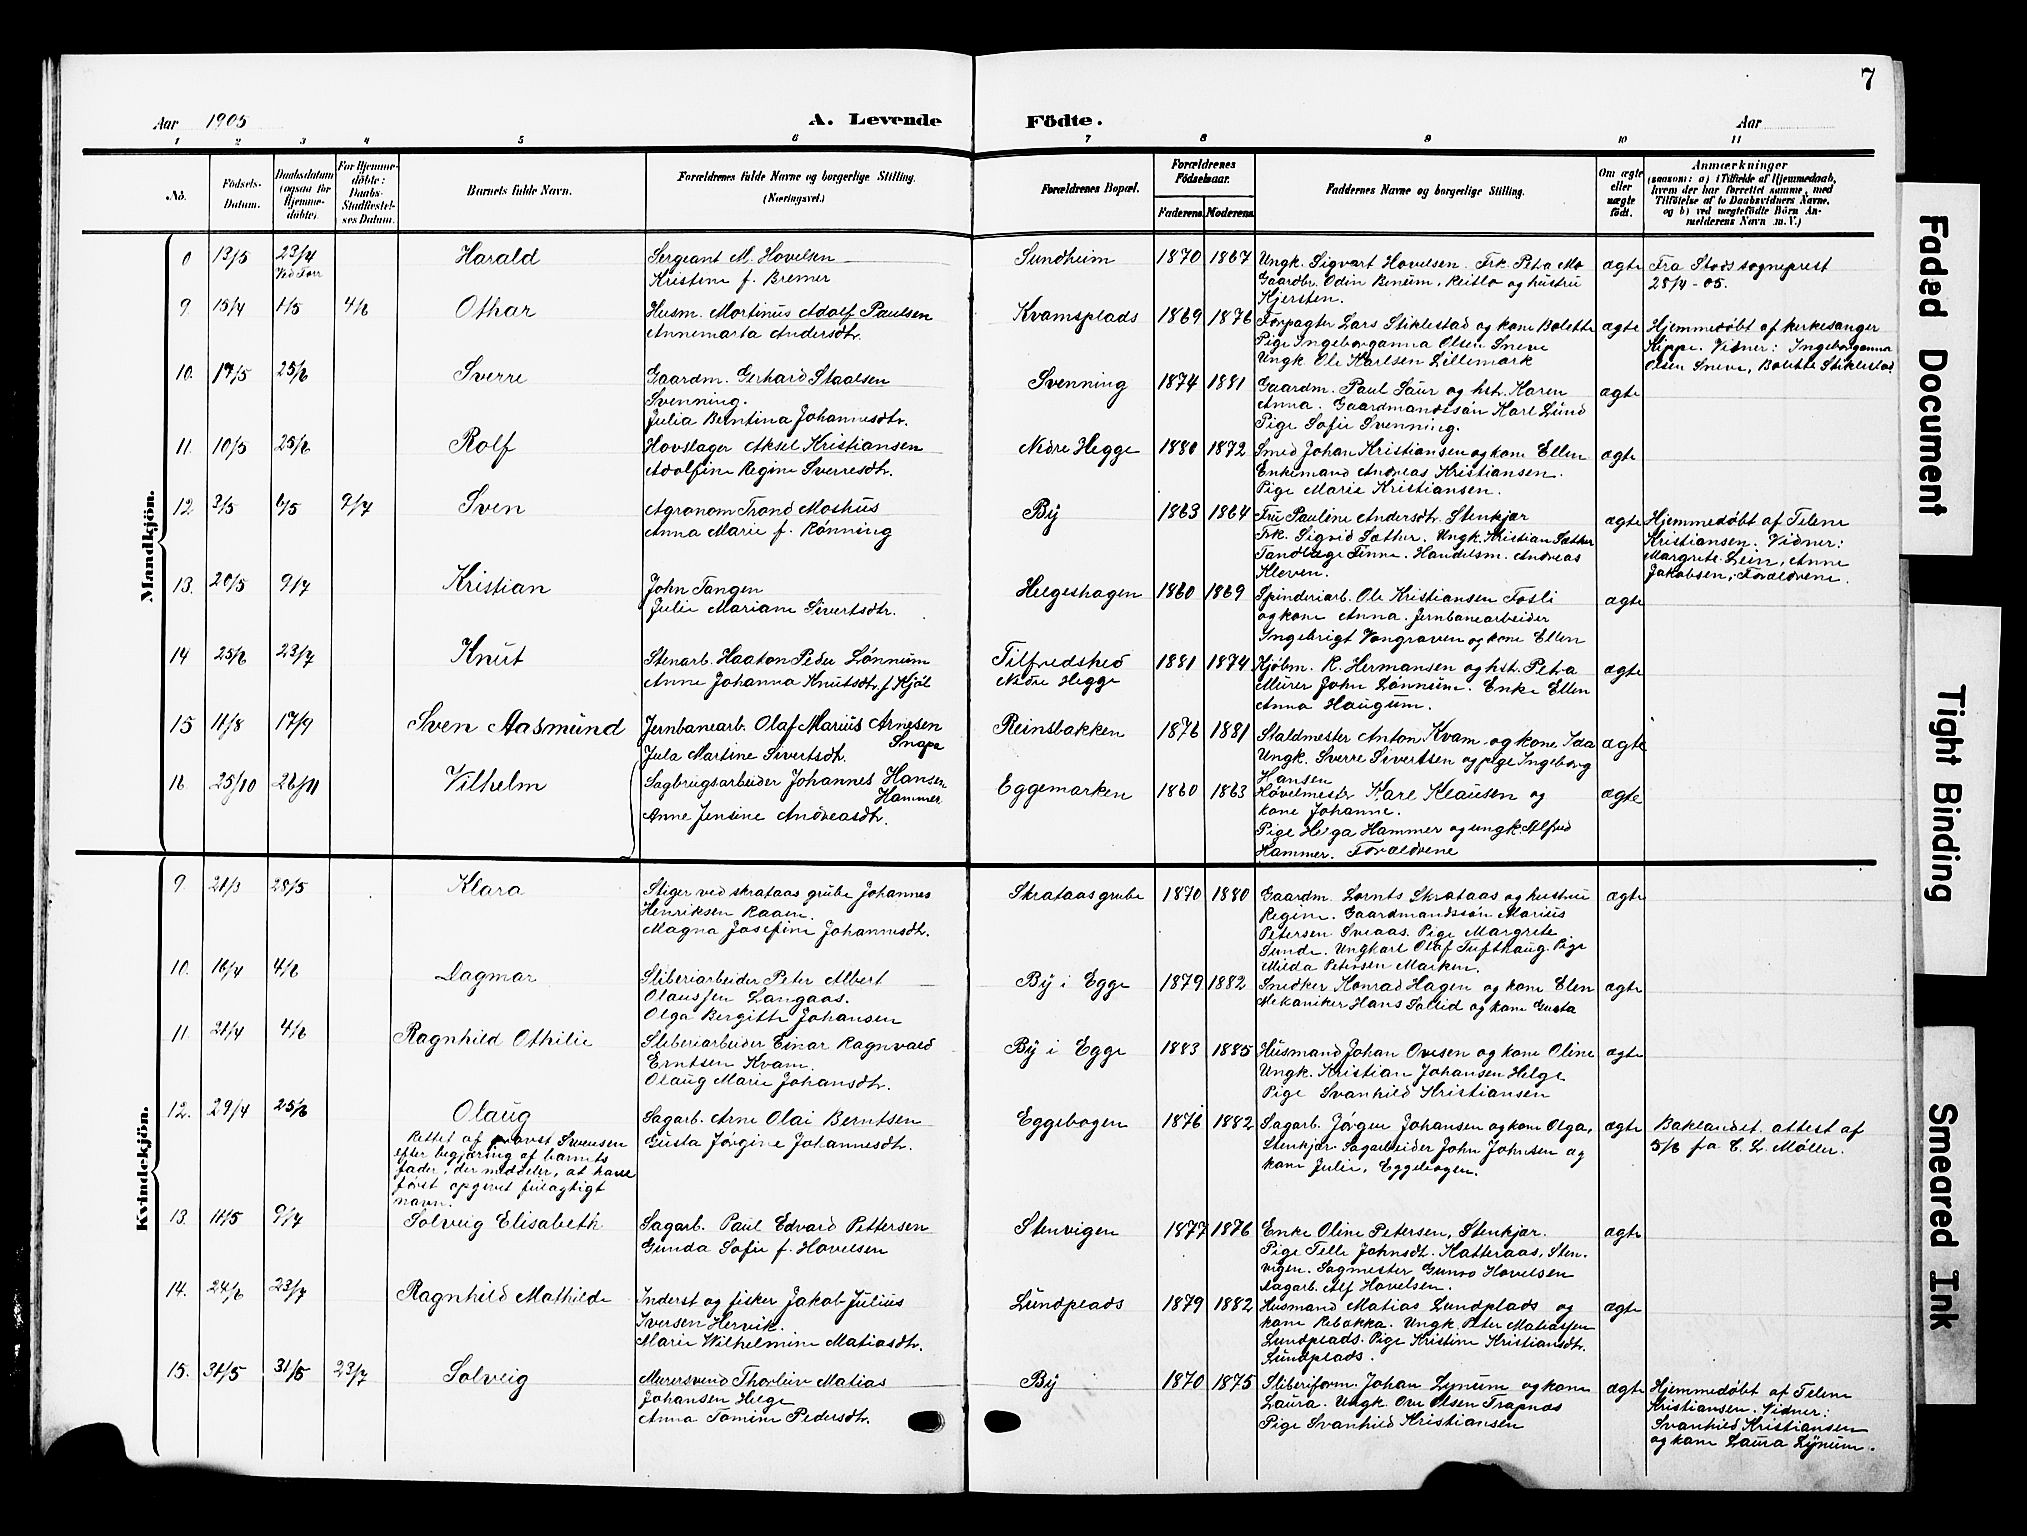 7
Aar 1905
A. Levende Födte.
Aar
1 2 3 4 5 6 7 8 9 10 11
No.
Födsels-Datum.
Daabsdatum (ogsaa for Hjemme-döbte).
For Hjemme-döbte: Daabs-Stadfæstel-ses Datum.
Barnets fulde Navn.
Forældrenes fulde Navne og borgerlige Stilling. (Næringsvei.)
Forældrenes Bopæl.
Forældrenes Födselsaar.
Faderens. Moderens.
Faddernes Navne og borgerlige Stilling.
Om ægte eller uægte födt.
Anmærkninger
(saasom: a) i Tilfælde af Hjemmedaab, hvem der har forrettet samme, med Tilföielse af to Daabsvidners Navne, og b) ved uægtefödte Börn An-melderens Navn m. V.)
Mandkjön.
8 13/3 23/4 Harald Sergeant M. Hovelsen Sundheim 1870 1867 Ungk. Sigvart Hovelsen. Frk. Petra Mo ægte Fra Stods sogneprest
Kristene f. Bremer Gaardbr. Odin Benum, Reitlo og hustru 28/4-05.
Kjersten.
9. 15/4 1/5 4/6 Othar Husm. Martinus Adolf Paulsen Kvamsplads 1869 1876 Forpagter Lars Stiklestad og kone Bolette ægte Hjemmedøbt af kirkesanger
Annemarta Andersdtr. Pige Ingeborganna Olsen Sneve Kippe. Vidner: Ingeborganna
Ungk. Ole Karlsen Lillemark Olsen Sneve, Bolette Stiklestad
10. 17/5 25/6 Sverre Gaardm. Gerhard Staalsen Svenning 1874 1881 Gaardm. Paul Saur og hst. Karen ægte
Svenning. Anna. Gaardmandssøn Karl Lund
Julia Berntina Johannesdtr. Pige Sofie Svenning.
11. 10/5 25/6 Rolf Hovslager Aksel Kristiansen Nedre Hegge 1880 1872 Smed Johan Kristiansen og kone Ellen ægte
Adolfine Regine Sverresdtr. Enkemand Andreas Kristiansen.
Pige Marie Kristiansen.
12 3/5 6/5 9/7 Sven Agronom Trond Moshus By 1863 1864 Fru Pauline Andersdtr. Stenkjær ægte Hjemmedøbt af Telene
Anna Marie f. Rønning Frk. Sigrid Sæther. Ungk. Kristian Sæther Kristiansen. Vidner:
Tandlæge Finne. Handelsm. Andreas Margrete Lein, Anne
Kleven. Jakobsen, Forældrene.
13. 20/5 9/7 Kristian John Tangen Helgeshagen 1860 1869 Spinderiarb. Ole Kristiansen Fosli ægte
Julie Mariane Sivertsdtr. og kone Anna. Jernbanearbeider
Ingebrigt Vongraven og kone Ellen
14 25/6 23/7 Knut Stenarb. Haaton Peder Lønnum Tilfredshed 1881 1874 Hjølm. R. Hermansen og hst. Petra ægte
Anne Johanna Knutsdtr. f. Kjøl Nedre Hegge Murer John Lønnum. Enke Ellen
Anna Haugum.
15 11/8 17/9 Sven Aasmund Jernbanearb. Olaf Marius Arnesen Reinsbakken 1876 1881 Staldmester Anton Kvam og kone Ida ægte
Snape
Jula Martine Sivertsdtr. Ungk. Sverre Sivertsen og pige Ingeborg
Hansen
16 25/10 26/11 Vilhelm Sagbrugsarbeider Johannes Hansen Eggemarken 1860 1863 Høvelmester Karl Klausen og ægte
Hammer kone Johanne.
Anne Jensine Andreasdtr. Pige Helga Hammer og ungk. Alfred
Hammer. Forældrene
Kvindekjön.
9. 21/3 28/5 Klara Stiger ved skrataas grube Johannes Skrataas grube 1870 1880 Gaardm. Lornts Skrataas og hustru ægte
Henriksen Raaen. Regine. Gaardmandssøn Marius
Magna Josefine Johannesdtr. Petersen Sveaas. Pige Margrete
Sunde. Ungkarl Olaf Tufthaug. Pige
Milda Petersen Marken.
10. 16/4 4/6 Dagmar Sliberiarbeider Peter Albert By i Egge 1879 1882 Snedker Konrad Hagen og kone Elen ægte
Olaussen Langaas. Mekaniker Hans Saltid og kone Gusta
Olga Bergitte Johansen
11. 21/4 4/6 Ragnhild Othilie Sliberiarbeider Einar Ragnvald By i Egge 1883 1885 Husmand Johan Ovesen og kone Oline ægte
Erntsen Kvam. Ungk. Kristian Johansen Helge
Olaug Marie Johansdtr. Pige Svanhild Kristiansen
12. 29/4 25/6 Olaug Sagarb. Arne Olai Berntsen Eggebogen 1876 1882 Sagarb. Jørgen Johansen og kone Olga, ægte Baklandet. attest af
Rettet af provst Svensen Gusta Jørgine Johannesdtr. Stenkjær. Sagarbeider John Johnsen og 5/6 fra C. L. Møller.
efter begjæring af barnets kone Julie, Eggebogen.
fader, der meddeler, at have
først opgivet feilagtigt
navn.
13. 11/5 9/7 Solveig Elisabeth Sagarb. Paul Edvard Pettersen Stenvigen 1877 1876 Enke Oline Petersen, Stenkjær. ægte
Gunda Sofie f. Hovelsen Pige Telle Johnsdt. Katteraas, Sten-
vigen. Sagmester Hovelsen
Sagarb. Alf Hovelsen.
14. 24/6 23/7 Ragnhild Mathilde Inderst og fisker Jakob Julius Lundplads 1879 1882 Husmand Matias Lundplads og ægte
Iversen Hervik. kone Rebakka. Ungk. Peter Matiassen
Marie Wilhelmine Matiasdtr. Lundplads. Pige Kristine Kristiansdtr.
Lundplads.
15. 31/5 31/5 23/7 Solveig Murersvend Thorleiv Matias By 1870 1875 Sliberiform. Johan Lynum og kone ægte Hjemmedøbt af Telene
Johansen Helge Laura. Ungk. Ove Olsen Trapnæs Kristiansen. Vidner:
Anna Tomine Pedersdtr. Pige Svanhild Kristiansen Svanhild Kristiansen
og kone Laura Lynum.
Faded Document
Tight Binding
Smeared Ink